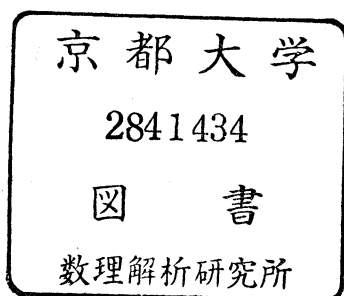 京都大学
2841434
図書
数理解析研究所